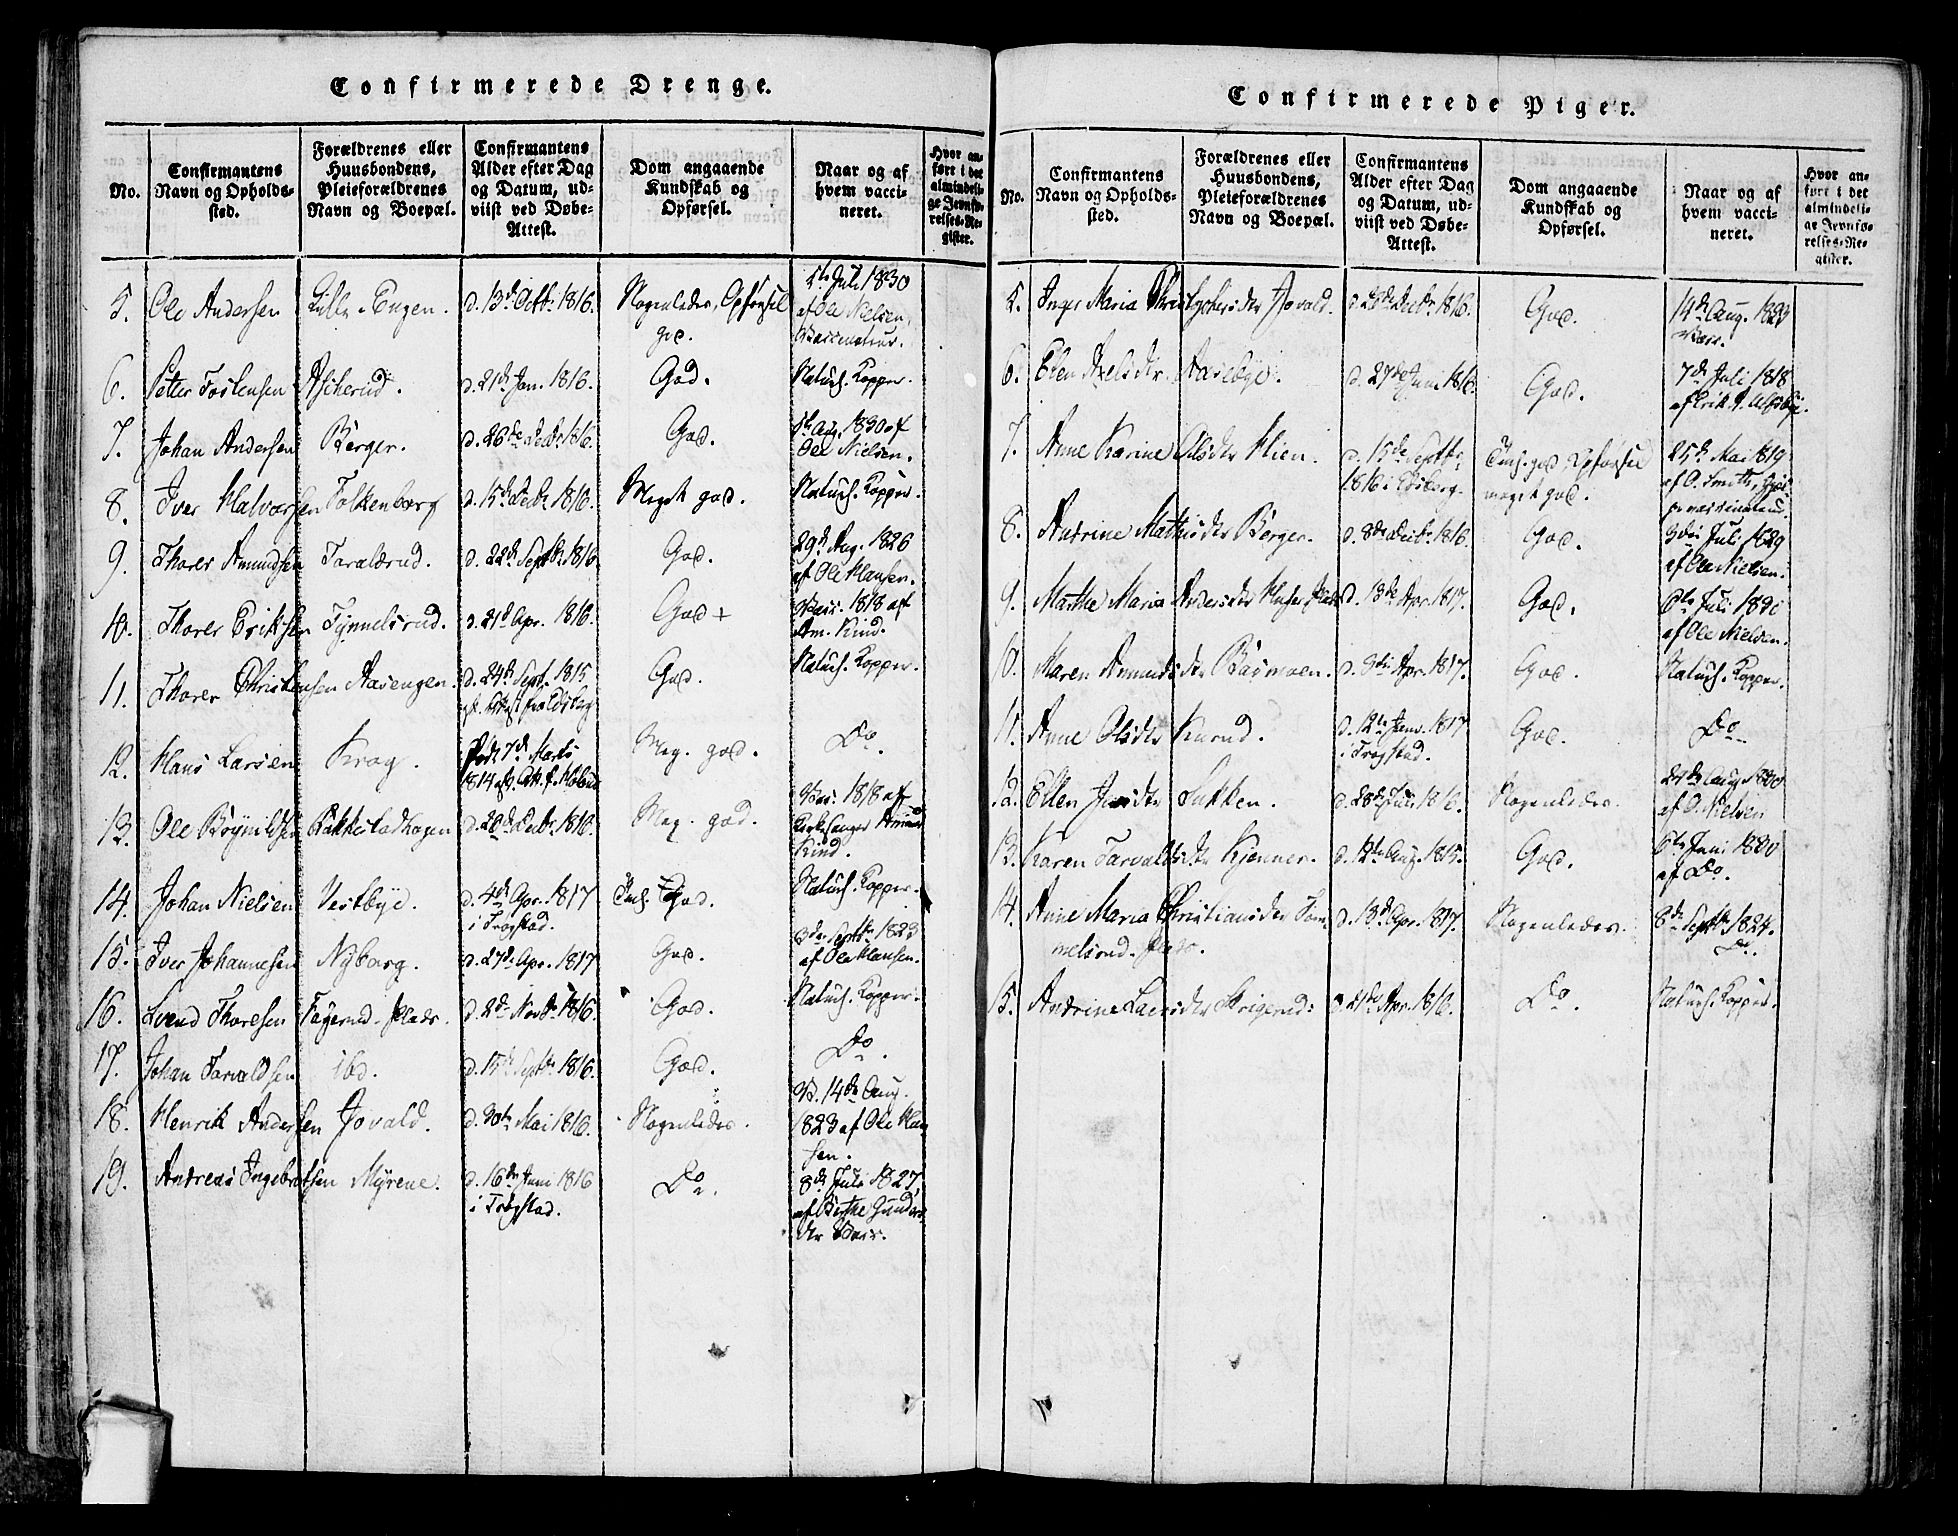 Confirmerede Drenge.
No.
Confirmantens
Navn og Opholds-
sted.
Forældrenes eller
Huusbondens,
Pleieforældrenes
Navn og Boepæl.
Confirmantens
Alder efter Dag
og Datum, ud-
viist ved Døbe-
Attest.
Dom angaaende
Kundskab og
Opførsel.
Naar og af
hvem vacci-
neret.
Hvor an-
ført i det
almindeli-
ge Jevnfø-
relses-Re-
gister.
5. Ole Andersen Lille-Engen. d. 13de Octbr 1816. Nogenledes, Opførsel god. Juli 1830 af Ole Nielsen,
6. Peter Torstensen Ascherud. d. 21de Jan. 1816. God. Naturl. Kopper.
7. Johan Andersen Berger. d. 26de Decbr 1816. God. Aug. 1830 af Ole Nielsen.
8. Iver Halvorsen Falkenborg d. 15de Decbr 1816. Meget god. Naturl. Kopper.
9. Thorer Amundsen Taraldrud. d. 22de Septbr 1816. God. 29de Aug. 1826 af Ole Hansen.
10. Thorer Eriksen Tymmelsrud. d. 21de Apr. 1816. God Vacc. 1818 af Am. Kind.
11. Thorer Christensen Aasengen. d. 24de Sept. 1815 God. Naturl. Kopper.
12. Hans Larsen Krog. Fød 7de Marts 1814 Meg. god. Do.
13. Ole Brynildsen Bakkestadhagen d. 20de Decbr 1816. Meg. god. Vac. 1818 af Kirkesanger Amund Kind.
14. Johan Nielsen Vestbye. d. 4de Apr. 1817 i Trøgstad. God. Naturl. Kopper.
15. Iver Johannesen Nyborg. d. 27de Apr. 1817 God. 3de Septbr 1823 af Ole Hansen.
16. Svend Thoresen Fagerud-Plads. d. 2de Novbr 1816. God. Naturl. Kopper.
17. Johan Tarvaldsen ibd. d. 15de Septbr 1816. God. Do.
18. Henrik Andersen Jovald. d. 30te Mai 1816. Nogenledes. V. 14de Aug. 1823 af Ole Hansen.
19. Andreas Ingebretsen Myrene. d. 16de Juni 1816 i Trøgstad. Do. 8de Juli 1827, af Berthe Gundersdtr Vacc.
Confirmerede Piger.
No.
Confirmantens
Navn og Opholds-
sted.
Forældrenes eller
Huusbondens,
Pleieforældrenes
Navn og Boepæl.
Confirmantens
Alder efter Dag
og Datum, ud-
viist ved Døbe-
Attest.
Dom angaaende
Kundskab og
Opførsel.
Naar og af
hvem vacci-
neret.
Hvor an-
ført i det
almindeli-
ge Jevnfø-
relses-Re-
gister.
5. Inger Maria Christophersdtr Jovald. d. Decbr 1816. God. 14de Aug. 1823 Vacc.
6. Elen Axelsdtr Aasebye. d. 27de Juni 1816. God. 7de Juli 1818 af Erik
7. Anne Karine Olsdtr Hien. d. 15de Septbr 1816 i Edsberg. god, Opførsel meget god. 25de Mai 1819 af O. Smith,
8. Andrine Mathisdtr Berger. d. 8de Decbr 1816. God. Juli 1829 af Ole Nielsen.
9. Marthe Maria Andersdtr d. 13de Apr. 1817. God. 6te Juli 1830 af Ole Nielsen.
10. Maren Amundsdtr Basmoen. d. 3die Apr. 1817. God. Naturl. Kopper.
11. Anne Olsdtr Kinrud. d. 12te Jan. 1817 i Trøgstad. God. Do
12. Ellen Jensdtr Sukken. d. 28de Juli 1816. Nogenledes. Aug. 1830 af O. Nielsen
13. Karen Tarvaldsdtr Kjenner. d. 12te Aug. 1815. God. 6te Juni 1830 af Do.
14. Anne Maria Christiansdtr Tymmelsrud-Plads. d. 13de Apr. 1817. Nogenledes. 8de Septbr 1824. Do.
15. Andrine Larsdtr Skrigerud. d. 21de Apr. 1816. Do. Naturl. Kopper.